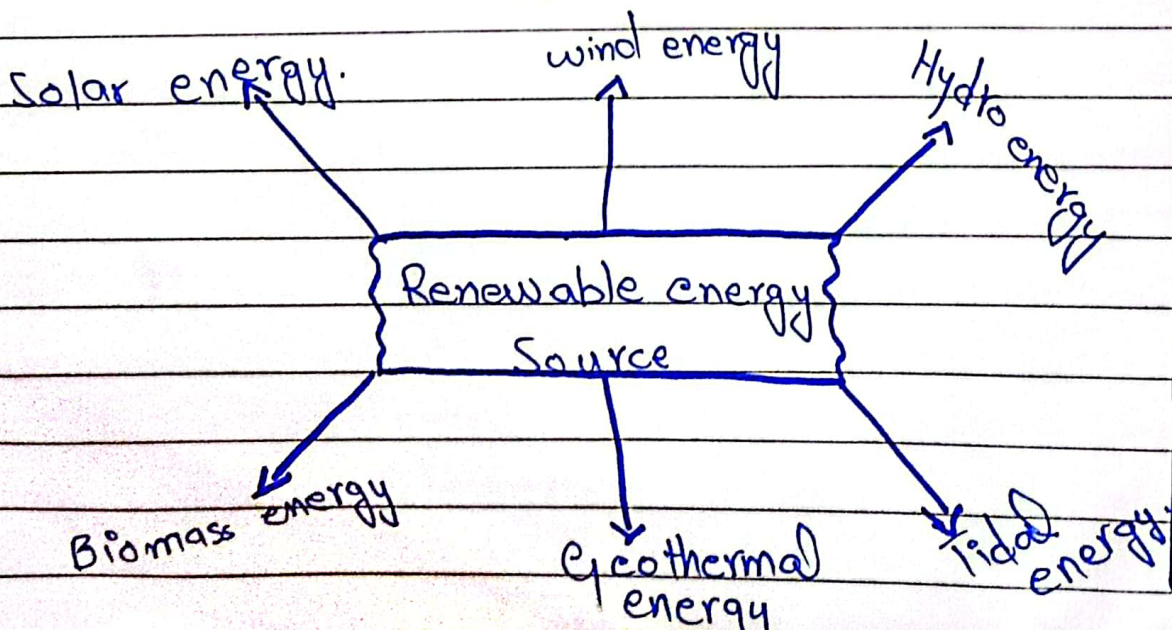 Solar energy.
wind energy
Hydro energy
Renewable energy
Source
Biomass energy
Geothermal
energy
Tidal
energy.